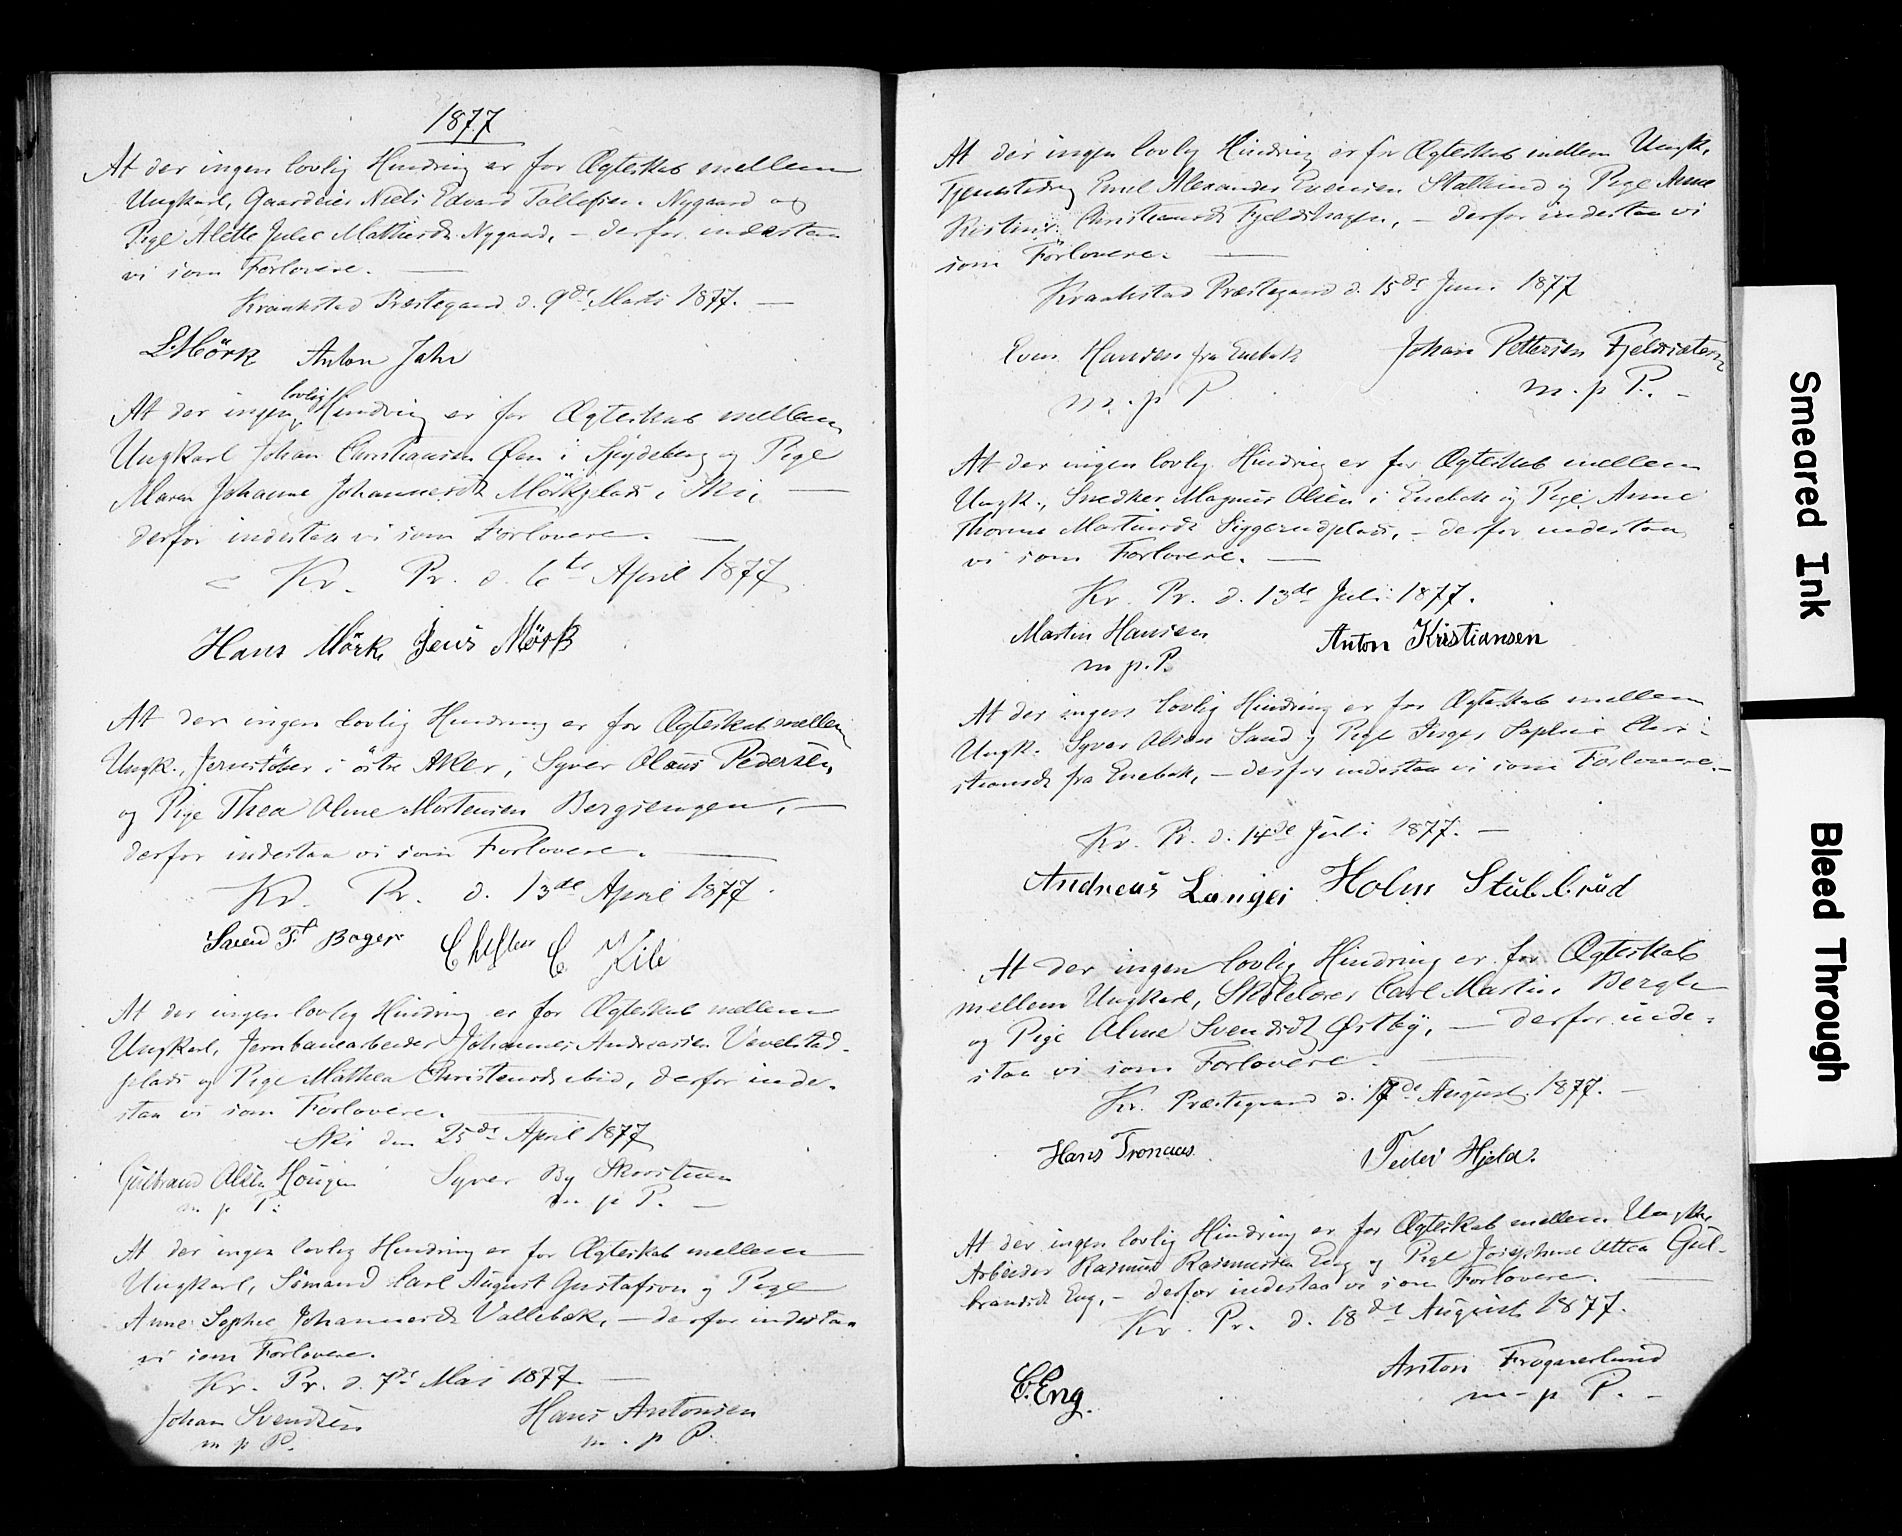 1877
At der ingen lovlig Hindring er for Ægteskab mellem
Ungkarl, Gaardeier Niels Edvard Tollefsen Nygaard og
Pige Alette Julie Mathisdt. Nygaard, – derfor indestaa
vi som Forlovere. —
Kraakstad Præstegaard d. 9de Marts 1877. —
L. Mörk Anton Jahr
At der ingen lovlig Hindring er for Ægteskab mellem
Ungkarl Johan Christiansen Øen i Spydeberg og Pige
Maren Johanne Johannesdt Mörkplads i Ski, —
derfor indestaa vi som Forlovere. —
Kr. Pr. d. 6te April 1877
Hans Mörk Jens Mörk
At der ingen lovlig Hindring er for Ægteskab mellem
Ungk., Jernstöber i östre Aker, Syver Olaus Pedersen,
og Pige Thea Oline Mortensen Bergsengen, —
derfor indestaa vi som Forlovere. —
Kr. Pr. d. 13de April 1877.
C Kile
At der ingen lovlig Hindring er for Ægteskab mellem
Ungkarl, Jernbanearbeider Johannes Andreasen Vevelstad-
plads og Pige Mathea Christensdt ibid, derfor inde-
staa vi som Forlovere. —
Ski den 25de April 1877
Gulbrand Olsen Haugen Syver By Skorstuen
m p P. m p P. —
At der ingen lovlig Hindring er for Ægteskab mellem —
Ungkarl, Sömand Carl August Gustafson og Pige
Anne Sophie Johannesdt Vallebæk, – derfor indestaa
vi som Forlovere.
Kr. Pr. d. 7de Mai 1877. —
Johan Svendsen Hans Antonsen
m p P. m. p P.
At der ingen lovlig Hindring er for Ægteskab mellem Ungk.
Tjenestedrg Emil Alexander Evensen Stallerud og Pige Anne
Kristine Christiansdt Fjeldshagen, – derfor indestaa vi
som Forlovere. —
Kraakstad Præstegaard d. 15de Juni 1877
Even Hansen fra Enebak Johan Pettersen Fjeldsæteren
m. p P m. p P. –
At der ingen lovlig Hindring er for Ægteskab mellem
Ungk., Snedker Magnus Olsen i Enebak og Pige Anne
Thorine Martinsdt Siggerudplads, – derfor indestaa
vi som Forlovere. —
Kr. Pr. d. 13de Juli 1877.
Martin Hansen Anton Kristiansen
m p. P.
At der ingen lovlig Hindring er for Ægteskab mellem
Ungk. Syver Olsen Sand og Pige Inger Sophie Chri-
stiansdt fra Enebak, – derfor indestaa vi som Forlovere. –
Kr. Pr. d. 14de Juli 1877. —
Andreas Langei Holm Stubberud
At der ingen lovlig Hindring er for Ægteskab
mellem Ungkarl, Skolelærer Carl Martin Bergh
og Pige Oline Svendsdt Østby, — derfor inde-
staa vi som Forlovere. —
Kr. Præstegaard d. 17de August 1877. —
Hans Tronaas Peder Hjeld.
At der ingen lovlig Hindring er for Ægteskab mellem Ungk.
Arbeider Rasmus Rasmussen Eng og Pige Josephine Attea Gul-
brandsdt Eng, – derfor indestaa vi som Forlovere. —
Kr. Pr. d. 18de August 1877.
C. Eng. Anton Frognerlund
m – p P. –
Smeared Ink
Bleed Through